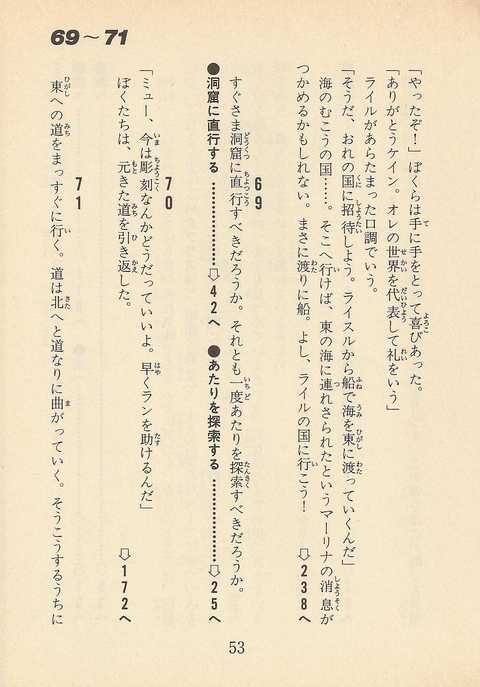 69～71
「やったぞ！」ぼくらは手に手をとって喜びあった。
「ありがとうケイン。オレの世界を代表して礼をいう」
ライルがあらたまった口調でいう。
「そうだ、おれの国に招待しよう。ライスルから船で海を東に渡っていくんだ」
海のむこうの国……。そこへ行けば、東の海に連れさられたというマーリナの消息が
つかめるかもしれない。まさに渡りに船。よし、ライルの国に行こう！
⇩238へ
69
すぐさま洞窟に直行すべきだろうか。それとも一度あたりを探索すべきだろうか。
●洞窟に直行する………………⇩42へ ●あたりを探索する………………⇩25へ
70
「ミュー、今は彫刻なんかどうだっていいよ。早くランを助けるんだ」
ぼくたちは、元きた道を引き返した。
⇩172へ
71
東への道をまっすぐに行く。道は北へと道なりに曲がっていく。そうこうするうちに
53